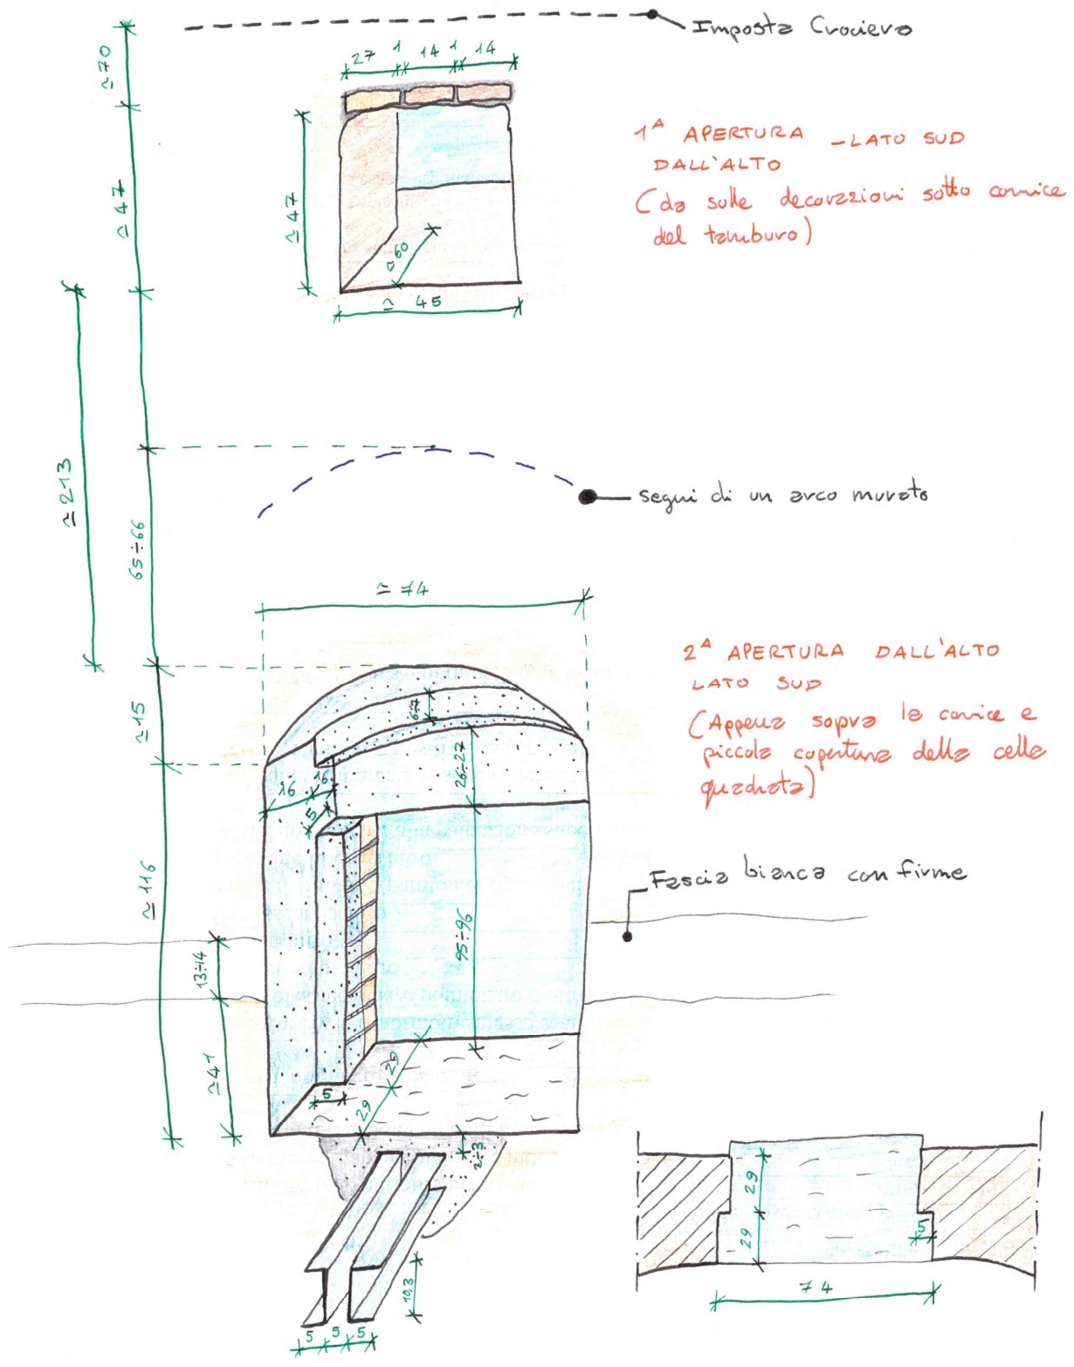 Imposta Crociera
≃70
27 1 14 1 14
1ᴬ APERTURA - LATO SUD
DALL'ALTO
(da sulle decorazioni sotto cornice
del tamburo)
≃47
≃47
≃60
≃ 45
≃213
65÷66
segni di un arco murato
≃ 74
2ᴬ APERTURA DALL'ALTO
LATO SUD
(Appena sopra la cornice e
piccola copertura della cella
quadrata)
≃15
6÷7
26÷27
16 16
5
≃116
Fascia bianca con firme
95÷96
13÷14
≃41
29
5
29
2÷3
29
29
5
74
10,3
5 5 5